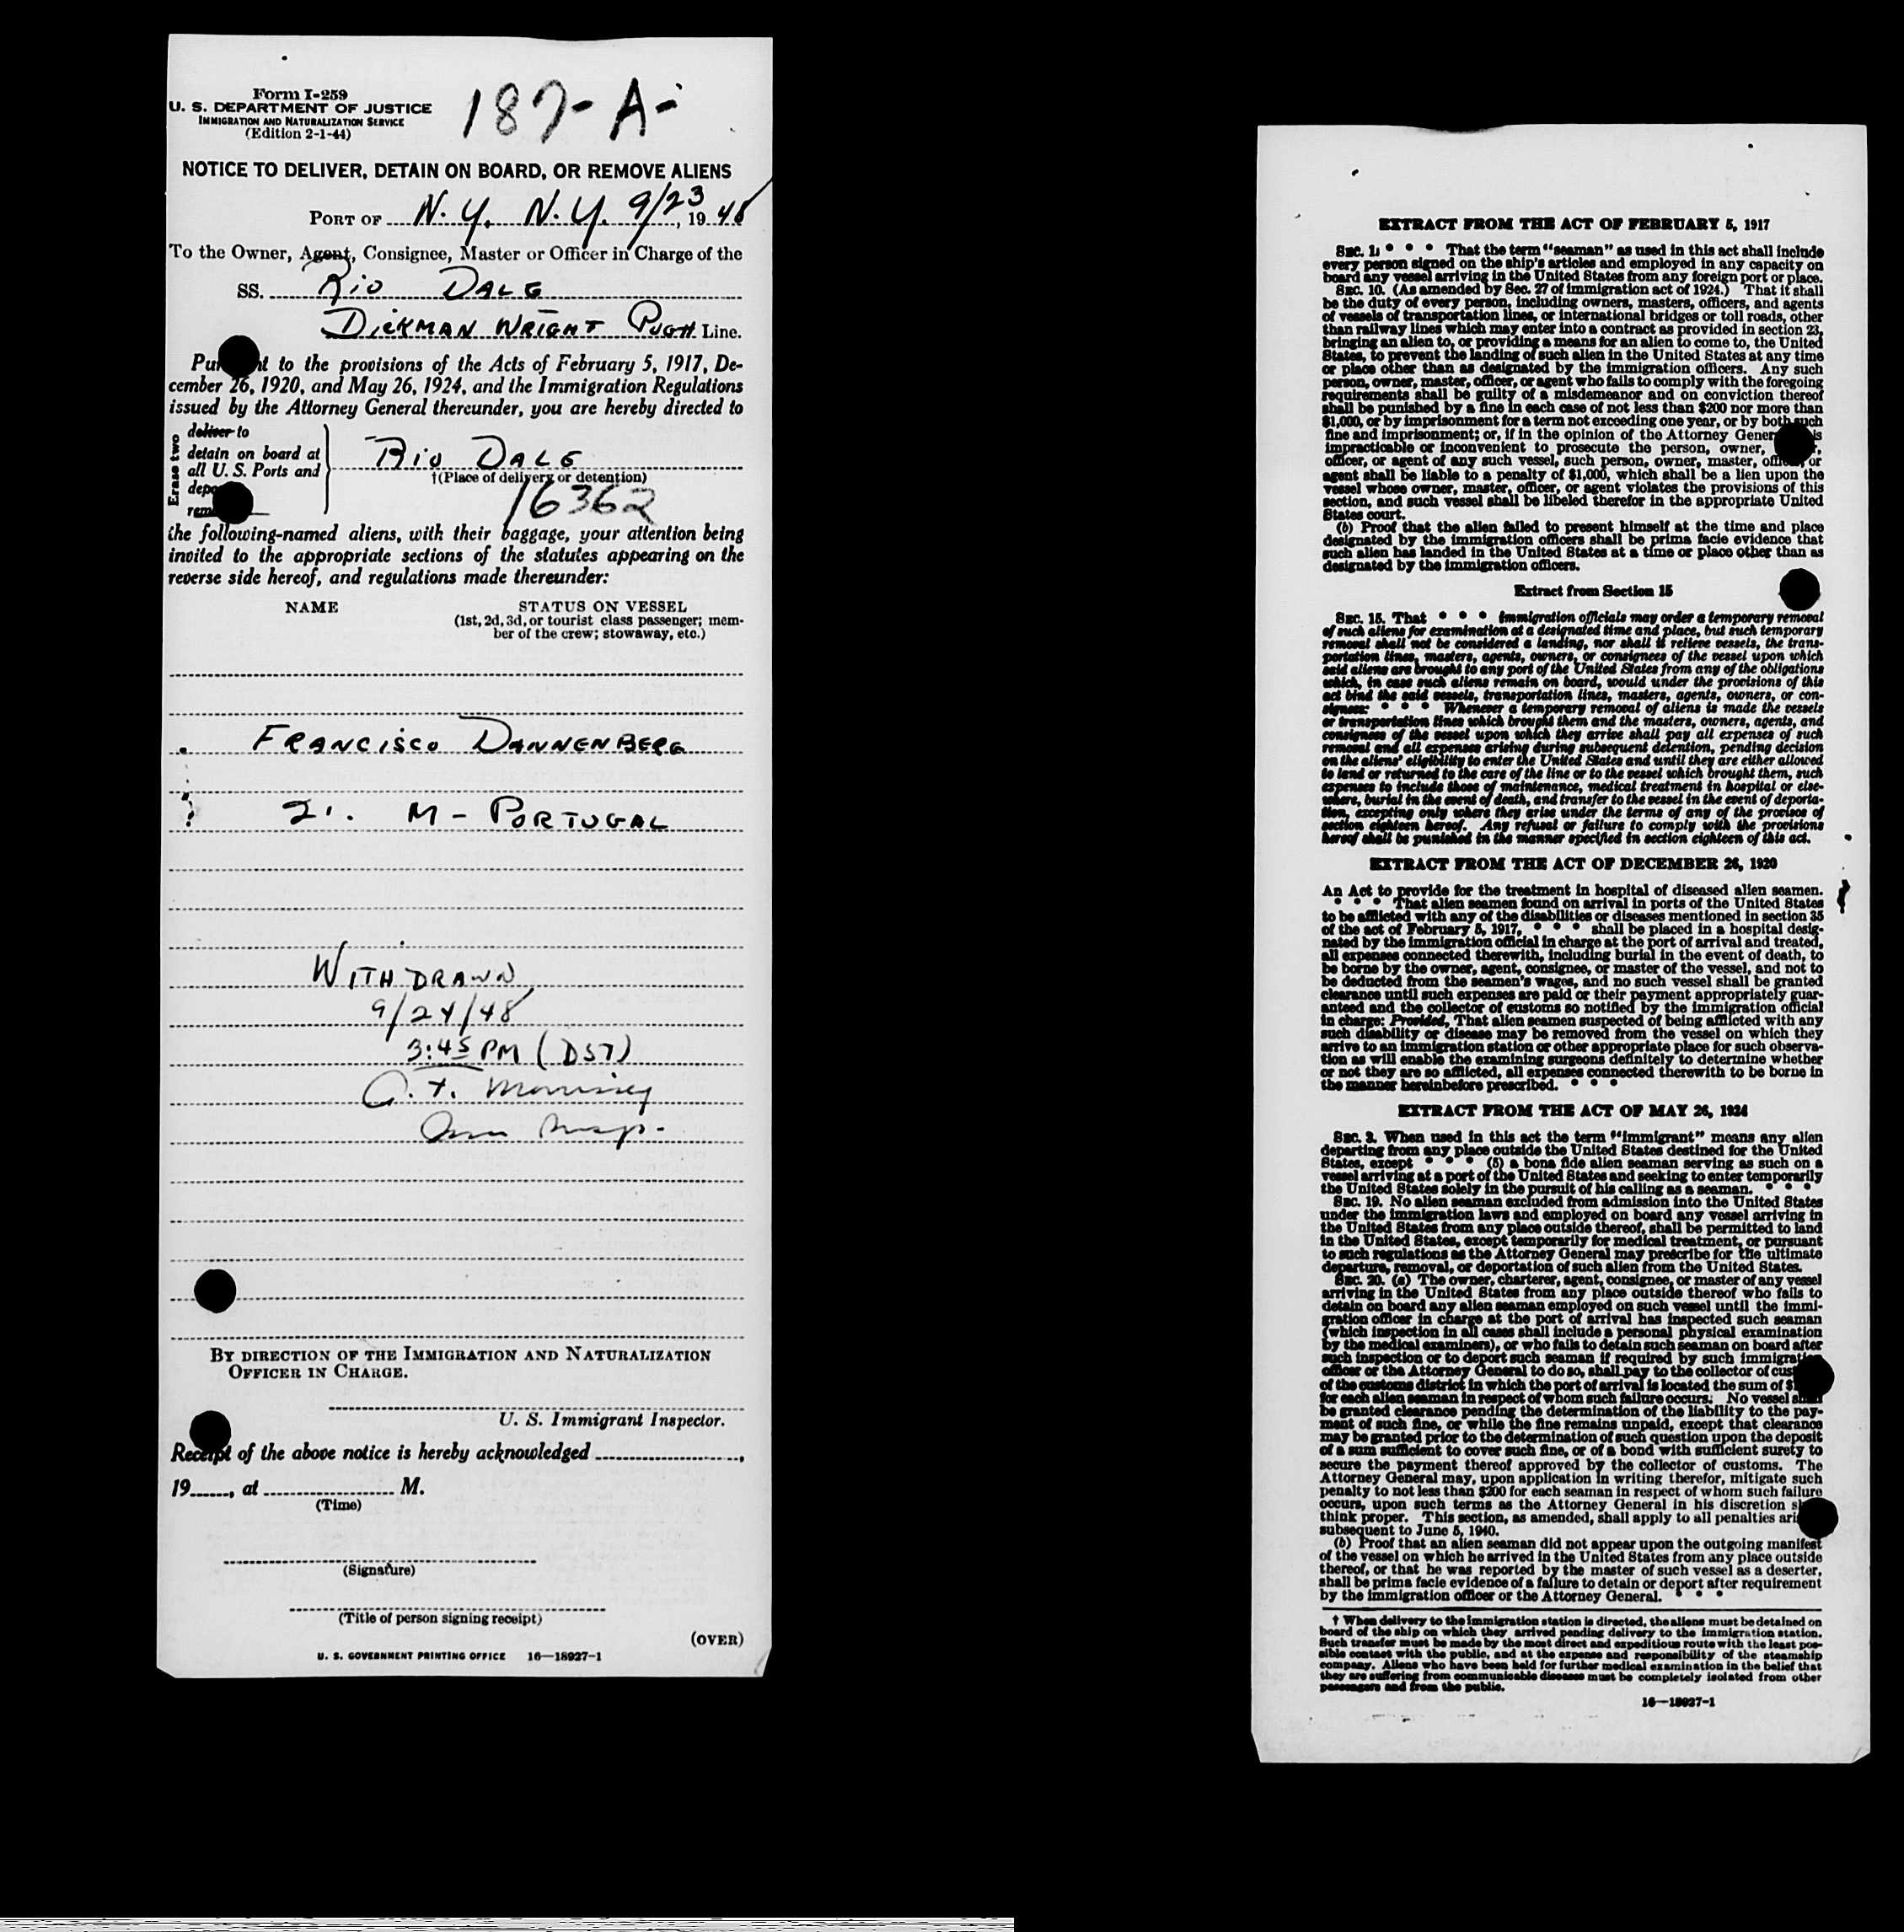 Form I-259
U. S. DEPARTMENT OF JUSTICE
IMMIGRATION AND NATURALIZATION SERVICE
(Edition 2-1-44)
187-A-
NOTICE TO DELIVER, DETAIN ON BOARD, OR REMOVE ALIENS
PORT OF N.Y. N.Y. 9/23, 1948
To the Owner, Agent, Consignee, Master or Officer in Charge of the
SS. RIO DALE
DICKMAN WRIGHT PUGH Line.
to the provisions of the Acts of February 5, 1917, De-
cember 26, 1920, and May 26, 1924, and the Immigration Regulations
issued by the Attorney General thereunder, you are hereby directed to
Erase two
deliver to
detain on board at
all U. S. Ports and
RIO DALE
†(Place of delivery or detention)
16362
the following-named aliens, with their baggage, your attention being
invited to the appropriate sections of the statutes appearing on the
reverse side hereof, and regulations made thereunder:
NAME
STATUS ON VESSEL
(1st, 2d, 3d, or tourist class passenger; mem-
ber of the crew; stowaway, etc.)
FRANCISCO DANNENBERG
21. M - PORTUGAL
WITHDRAWN
9/24/48
3:45 PM (DST)
Morrissey
BY DIRECTION OF THE IMMIGRATION AND NATURALIZATION
OFFICER IN CHARGE.
U. S. Immigrant Inspector.
Receipt of the above notice is hereby acknowledged ,
19 , at M.
(Time)
(Signature)
(Title of person signing receipt)
(OVER)
U. S. GOVERNMENT PRINTING OFFICE 16—18927-1
EXTRACT FROM THE ACT OF FEBRUARY 5, 1917
SEC. 1: * * * That the term "seaman" as used in this act shall include
every person signed on the ship's articles and employed in any capacity on
board any vessel arriving in the United States from any foreign port or place.
SEC. 10. (As amended by Sec. 27 of immigration act of 1924.) That it shall
be the duty of every person, including owners, masters, officers, and agents
of vessels of transportation lines, or international bridges or toll roads, other
than railway lines which may enter into a contract as provided in section 23,
bringing an alien to, or providing a means for an alien to come to, the United
States, to prevent the landing of such alien in the United States at any time
or place other than as designated by the immigration officers. Any such
person, owner, master, officer, or agent who fails to comply with the foregoing
requirements shall be guilty of a misdemeanor and on conviction thereof
shall be punished by a fine in each case of not less than $200 nor more than
$1,000, or by imprisonment for a term not exceeding one year, or by both such
fine and imprisonment; or, if in the opinion of the Attorney General is
impracticable or inconvenient to prosecute the person, owner,
officer, or agent of any such vessel, such person, owner, master, officer, or
agent shall be liable to a penalty of $1,000, which shall be a lien upon the
vessel whose owner, master, officer, or agent violates the provisions of this
section, and such vessel shall be libeled therefor in the appropriate United
States court.
(b) Proof that the alien failed to present himself at the time and place
designated by the immigration officers shall be prima facie evidence that
such alien has landed in the United States at a time or place other than as
designated by the immigration officers.
Extract from Section 15
SEC. 15. That * * * immigration officials may order a temporary removal
of such aliens for examination at a designated time and place, but such temporary
removal shall not be considered a landing, nor shall it relieve vessels, the trans-
portation lines, masters, agents, owners, or consignees of the vessel upon which
said aliens are brought to any port of the United States from any of the obligations
which, in case such aliens remain on board, would under the provisions of this
act bind the said vessels, transportation lines, masters, agents, owners, or con-
signees: * * * Whenever a temporary removal of aliens is made the vessels
or transportation lines which brought them and the masters, owners, agents, and
consignees of the vessel upon which they arrive shall pay all expenses of such
removal and all expenses arising during subsequent detention, pending decision
on the aliens' eligibility to enter the United States and until they are either allowed
to land or returned to the care of the line or to the vessel which brought them, such
expenses to include those of maintenance, medical treatment in hospital or else-
where, burial in the event of death, and transfer to the vessel in the event of deporta-
tion, excepting only where they arise under the terms of any of the provisos of
section eighteen hereof. Any refusal or failure to comply with the provisions
hereof shall be punished in the manner specified in section eighteen of this act.
EXTRACT FROM THE ACT OF DECEMBER 26, 1920
An Act to provide for the treatment in hospital of diseased alien seamen.
* * * That alien seamen found on arrival in ports of the United States
to be afflicted with any of the disabilities or diseases mentioned in section 35
of the act of February 5, 1917, * * * shall be placed in a hospital desig-
nated by the immigration official in charge at the port of arrival and treated,
all expenses connected therewith, including burial in the event of death, to
be borne by the owner, agent, consignee, or master of the vessel, and not to
be deducted from the seamen's wages, and no such vessel shall be granted
clearance until such expenses are paid or their payment appropriately guar-
anteed and the collector of customs so notified by the immigration official
in charge: Provided, That alien seamen suspected of being afflicted with any
such disability or disease may be removed from the vessel on which they
arrive to an immigration station or other appropriate place for such observa-
tion as will enable the examining surgeons definitely to determine whether
or not they are so afflicted, all expenses connected therewith to be borne in
the manner hereinbefore prescribed. * * *
EXTRACT FROM THE ACT OF MAY 26, 1924
SEC. 3. When used in this act the term "immigrant" means any alien
departing from any place outside the United States destined for the United
States, except * * * (5) a bona fide alien seaman serving as such on a
vessel arriving at a port of the United States and seeking to enter temporarily
the United States solely in the pursuit of his calling as a seaman. * * *
SEC. 19. No alien seaman excluded from admission into the United States
under the immigration laws and employed on board any vessel arriving in
the United States from any place outside thereof, shall be permitted to land
in the United States, except temporarily for medical treatment, or pursuant
to such regulations as the Attorney General may prescribe for the ultimate
departure, removal, or deportation of such alien from the United States.
SEC. 20. (a) The owner, charterer, agent, consignee, or master of any vessel
arriving in the United States from any place outside thereof who fails to
detain on board any alien seaman employed on such vessel until the immi-
gration officer in charge at the port of arrival has inspected such seaman
(which inspection in all cases shall include a personal physical examination
by the medical examiners), or who fails to detain such seaman on board after
such inspection or to deport such seaman if required by such immigration
officer or the Attorney General to do so, shall pay to the collector of
of the customs district in which the port of arrival is located the sum of
for each alien seaman in respect of whom such failure occurs. No vessel shall
be granted clearance pending the determination of the liability to the pay-
ment of such fine, or while the fine remains unpaid, except that clearance
may be granted prior to the determination of such question upon the deposit
of a sum sufficient to cover such fine, or of a bond with sufficient surety to
secure the payment thereof approved by the collector of customs. The
Attorney General may, upon application in writing therefor, mitigate such
penalty to not less than $200 for each seaman in respect of whom such failure
occurs, upon such terms as the Attorney General in his discretion
think proper. This section, as amended, shall apply to all penalties
subsequent to June 5, 1940.
(b) Proof that an alien seaman did not appear upon the outgoing manifest
of the vessel on which he arrived in the United States from any place outside
thereof, or that he was reported by the master of such vessel as a deserter,
shall be prima facie evidence of a failure to detain or deport after requirement
by the immigration officer or the Attorney General. * * *
† When delivery to the immigration station is directed, the aliens must be detained on
board of the ship on which they arrived pending delivery to the immigration station.
Such transfer must be made by the most direct and expeditious route with the least pos-
sible contact with the public, and at the expense and responsibility of the steamship
company. Aliens who have been held for further medical examination in the belief that
they are suffering from communicable diseases must be completely isolated from other
passengers and from the public.
16—18927-1